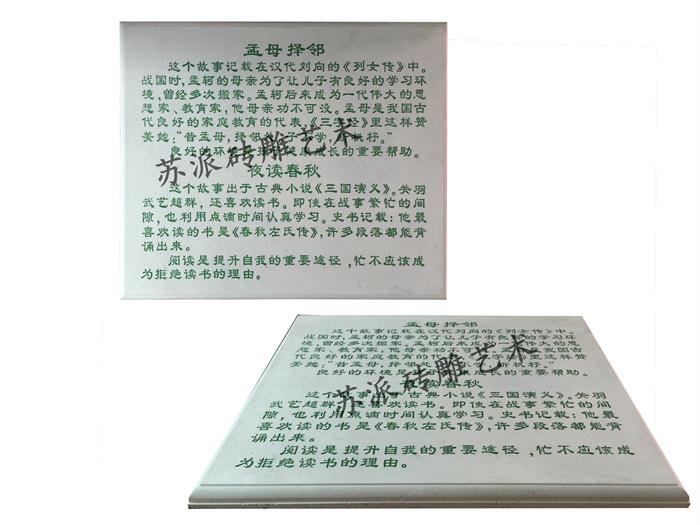 孟母择邻
这个故事记载在汉代刘向的《列女传》中。
战国时,孟轲的母亲为了让儿子有良好的学习环
境,曾经多次搬家。孟轲后来成为一代伟大的思
想家、教育家,他母亲功不可没。孟母是我国古
代良好的家庭教育的代表,《三字经》里这样赞
美她:“昔孟母,择邻处,子不学,断机杼。”
良好的环境是健康成长的重要帮助。
夜读春秋
这个故事出于古典小说《三国演义》。关羽
武艺超群,还喜欢读书。即使在战事繁忙的间
隙,也利用点滴时间认真学习。史书记载:他最
喜欢读的书是《春秋左氏传》,许多段落都能背
诵出来。
阅读是提升自我的重要途径,忙不应该成
为拒绝读书的理由。
苏派砖雕艺术
孟母择邻
这个故事记载在汉代刘向的《列女传》中。
战国时,孟轲的母亲为了让儿子有良好的学习环
境,曾经多次搬家。孟轲后来成为一代伟大的思
想家、教育家,他母亲功不可没。孟母是我国古
代良好的家庭教育的代表,《三字经》里这样赞
美她:“昔孟母,择邻处,子不学,断机杼。”
良好的环境是健康成长的重要帮助。
夜读春秋
这个故事出于古典小说《三国演义》。关羽
武艺超群,还喜欢读书。即使在战事繁忙的间
隙,也利用点滴时间认真学习。史书记载:他最
喜欢读的书是《春秋左氏传》,许多段落都能背
诵出来。
阅读是提升自我的重要途径,忙不应该成
为拒绝读书的理由。
苏派砖雕艺术